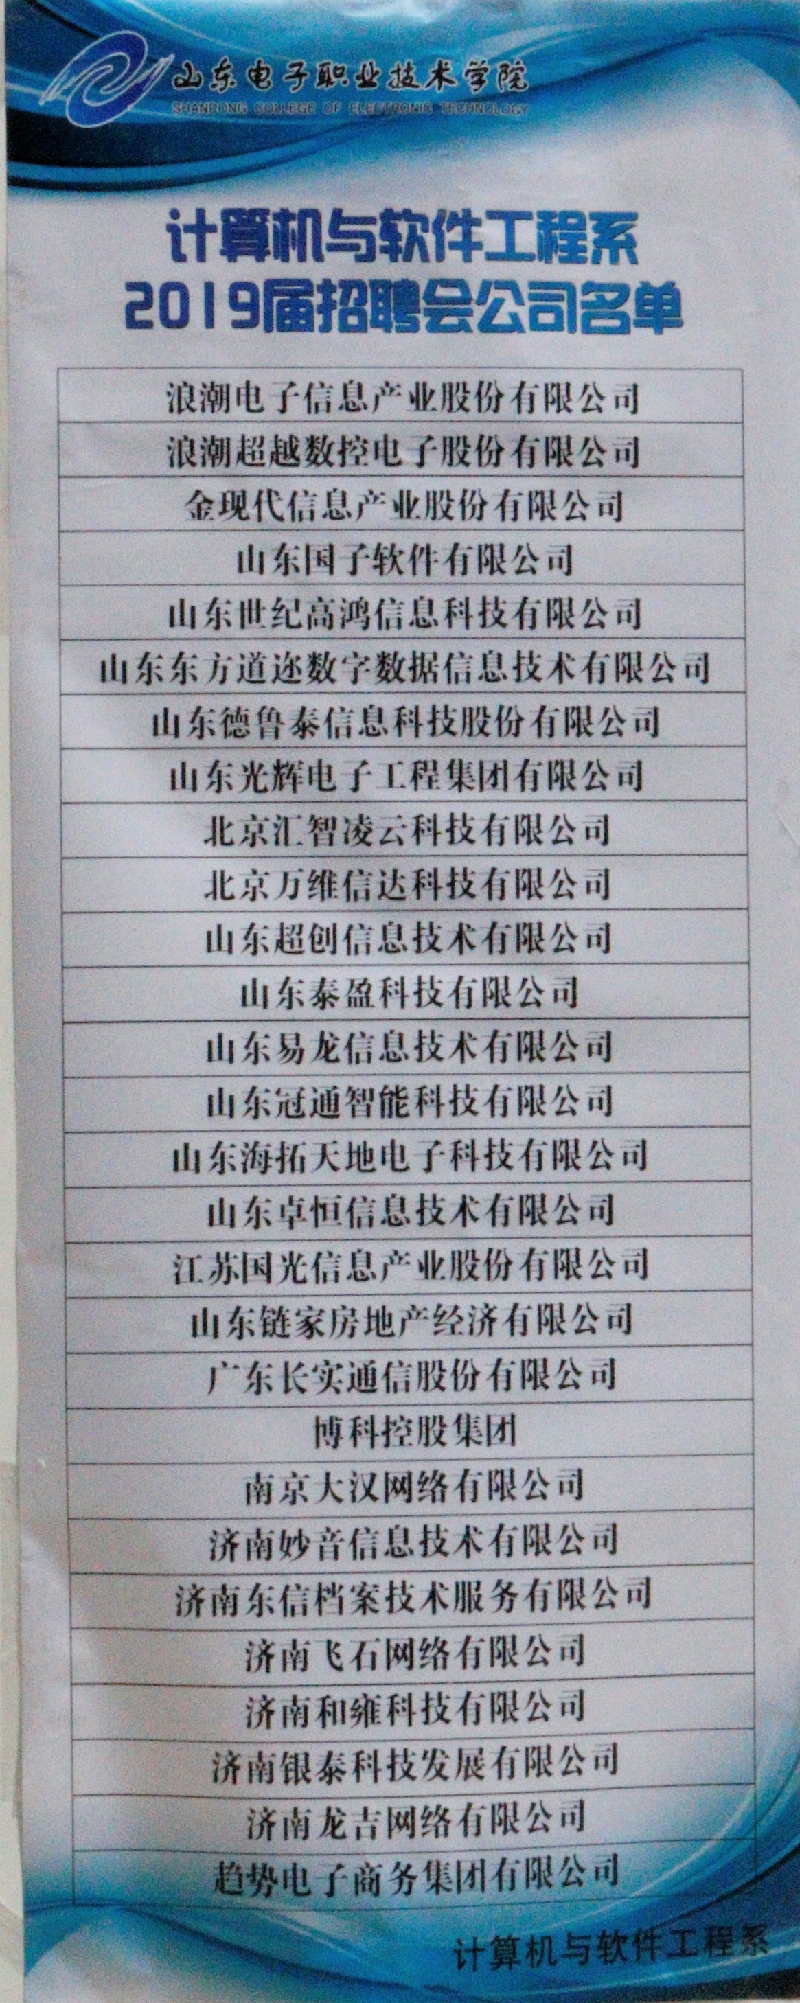 山东电子职业技术学院
SHANDONG COLLEGE OF ELECTRONIC TECHNOLOGY
计算机与软件工程系
2019届招聘会公司名单
浪潮电子信息产业股份有限公司
浪潮超越数控电子股份有限公司
金现代信息产业股份有限公司
山东国子软件有限公司
山东世纪高鸿信息科技有限公司
山东东方道迩数字数据信息技术有限公司
山东德鲁泰信息科技股份有限公司
山东光辉电子工程集团有限公司
北京汇智凌云科技有限公司
北京万维信达科技有限公司
山东超创信息技术有限公司
山东泰盈科技有限公司
山东易龙信息技术有限公司
山东冠通智能科技有限公司
山东海拓天地电子科技有限公司
山东卓恒信息技术有限公司
江苏国光信息产业股份有限公司
山东链家房地产经济有限公司
广东长实通信股份有限公司
博科控股集团
南京大汉网络有限公司
济南妙音信息技术有限公司
济南东信档案技术服务有限公司
济南飞石网络有限公司
济南和雍科技有限公司
济南银泰科技发展有限公司
济南龙吉网络有限公司
趋势电子商务集团有限公司
计算机与软件工程系